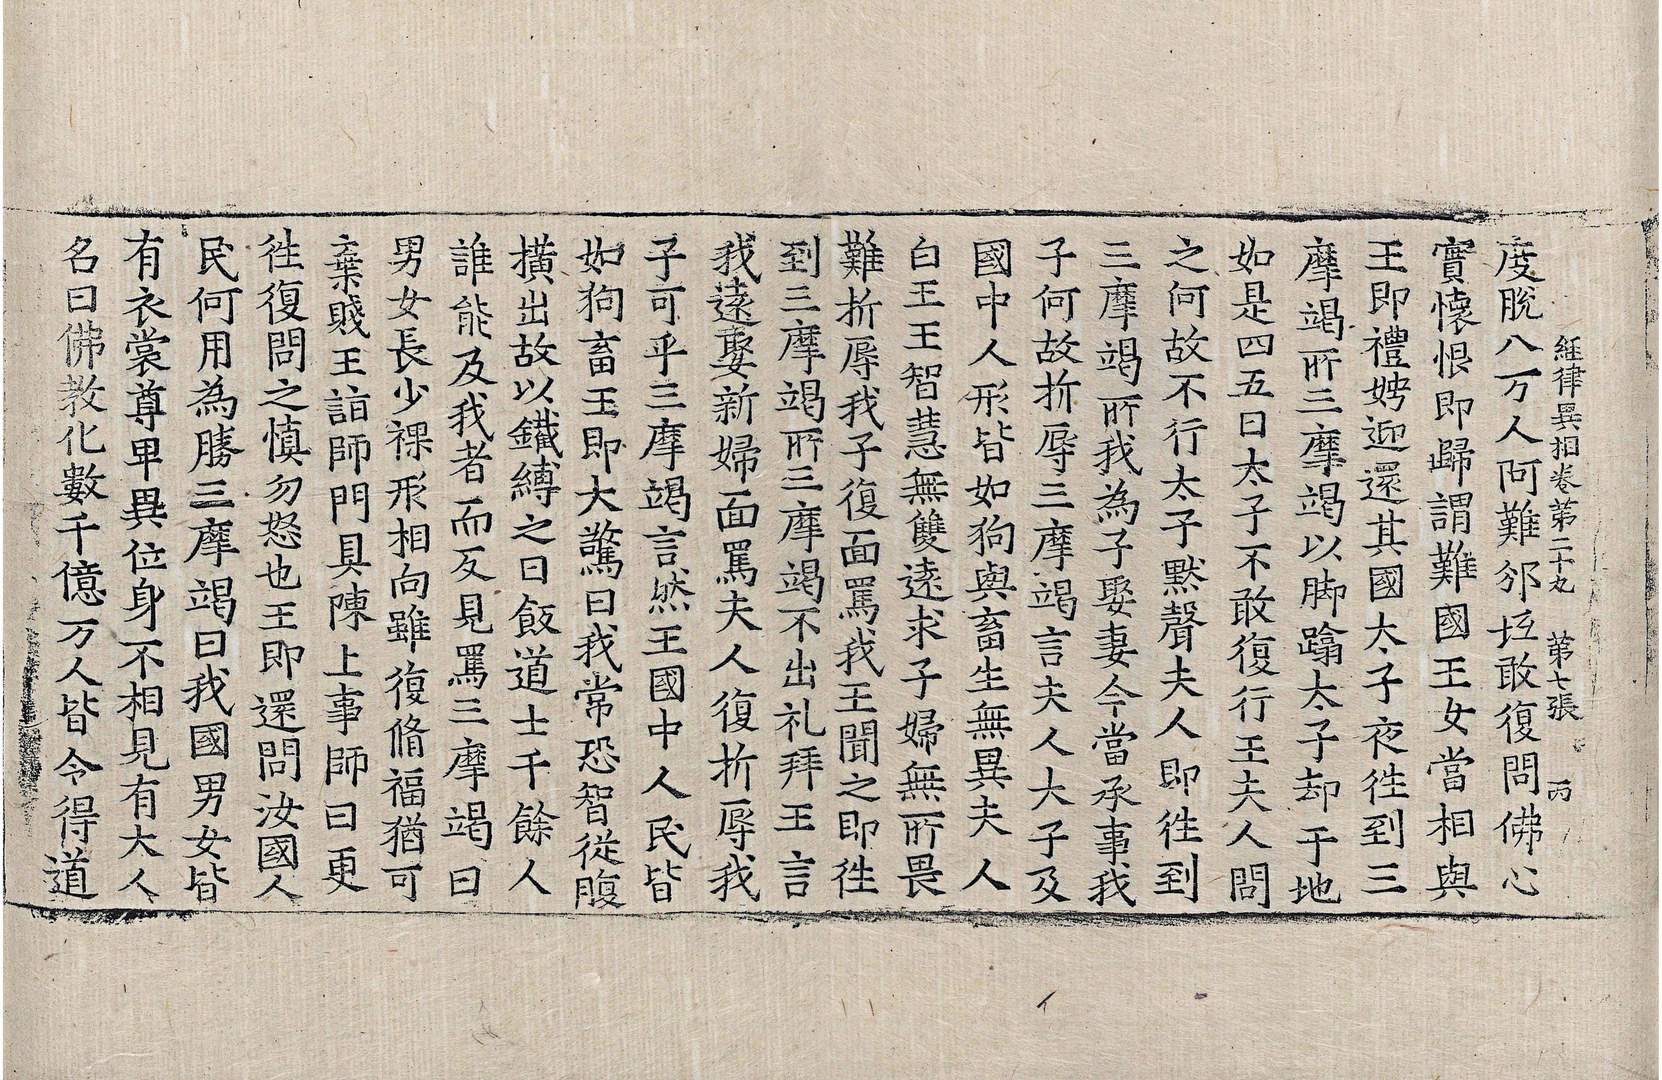 經律異相卷第二十九　第七張　丙
度脫八万人阿難邠坻敢復問佛心
實懷恨即歸謂難國王女當相與
王即禮娉迎還其國太子夜徃到三
摩竭所三摩竭以脚蹹太子却于地
如是四五日太子不敢復行王夫人問
之何故不行太子黙聲夫人即徃到
三摩竭所我為子娶妻今當承事我
子何故折辱三摩竭言夫人大子及
國中人形皆如狗與畜生無異夫人
白王王智慧無雙遠求子婦無所畏
難折辱我子復面罵我王聞之即徃
到三摩竭所三摩竭不出礼拜王言
我遠娶新婦面罵夫人復折辱我
子可乎三摩竭言然王國中人民皆
如狗畜王即大驚曰我常恐智從腹
橫出故以鐵縛之曰飯道士千餘人
誰能及我者而反見罵三摩竭曰
男女長少裸形相向雖復脩福猶可
棄賤王詣師門具陳上事師曰更
徃復問之慎勿怒也王即還問汝國人
民何用為勝三摩竭曰我國男女皆
有衣裳尊卑異位身不相見有大人
名曰佛教化數千億万人皆令得道